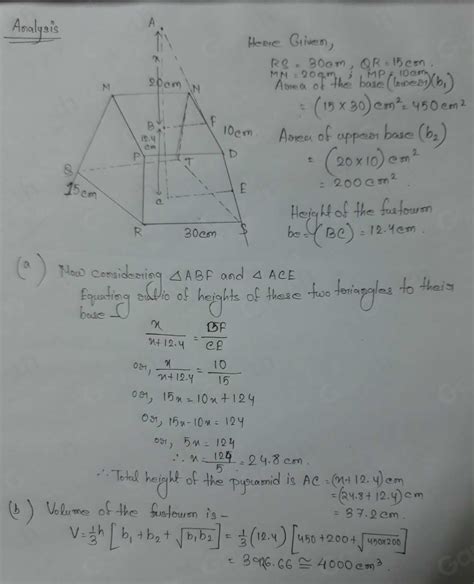 Analysis
Here Given,
RS = 30cm, QR = 15cm.
MN = 20cm, MP = 10cm
Area of the base (lower)(b₁)
= (15 × 30) cm² = 450 cm²
Area of upper base (b₂)
= (20 × 10) cm²
= 200 cm².
Height of the frustown
be = (BC) = 12.4 cm.
A
x
20cm
M
N
B
F
12.4
cm
10cm
P
T
D
S
15cm
C
E
R
30cm
S
(a) Now considering △ABF and △ACE
Equating ratio of heights of these two triangles to their
base –
x/(x+12.4) = BF/CE
or, x/(x+12.4) = 10/15
or, 15x = 10x + 124
or, 15x - 10x = 124
or, 5x = 124
∴ x = 124/5 = 24.8 cm.
∴ Total height of the pyramid is AC = (x + 12.4) cm
= (24.8 + 12.4) cm
= 37.2 cm.
(b) Volume of the frustown is –
V = 1/3 h [b₁ + b₂ + √b₁b₂] = 1/3 (12.4) [450 + 200 + √450×200]
= 3926.66 ≅ 4000 cm³.